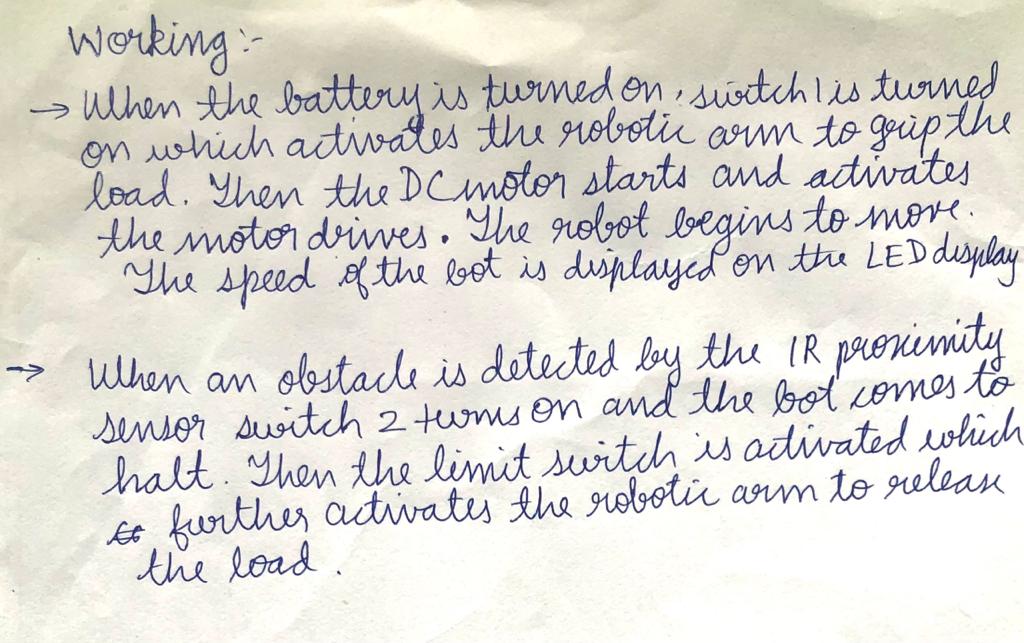 Working :-
→ When the battery is turned on, switch 1 is turned
on which activates the robotic arm to grip the
load. Then the DC motor starts and activates
the motor drives. The robot begins to move.
The speed of the bot is displayed on the LED display
→ When an obstacle is detected by the IR proximity
sensor switch 2 turns on and the bot comes to
halt. Then the limit switch is activated which
further activates the robotic arm to release
the load.